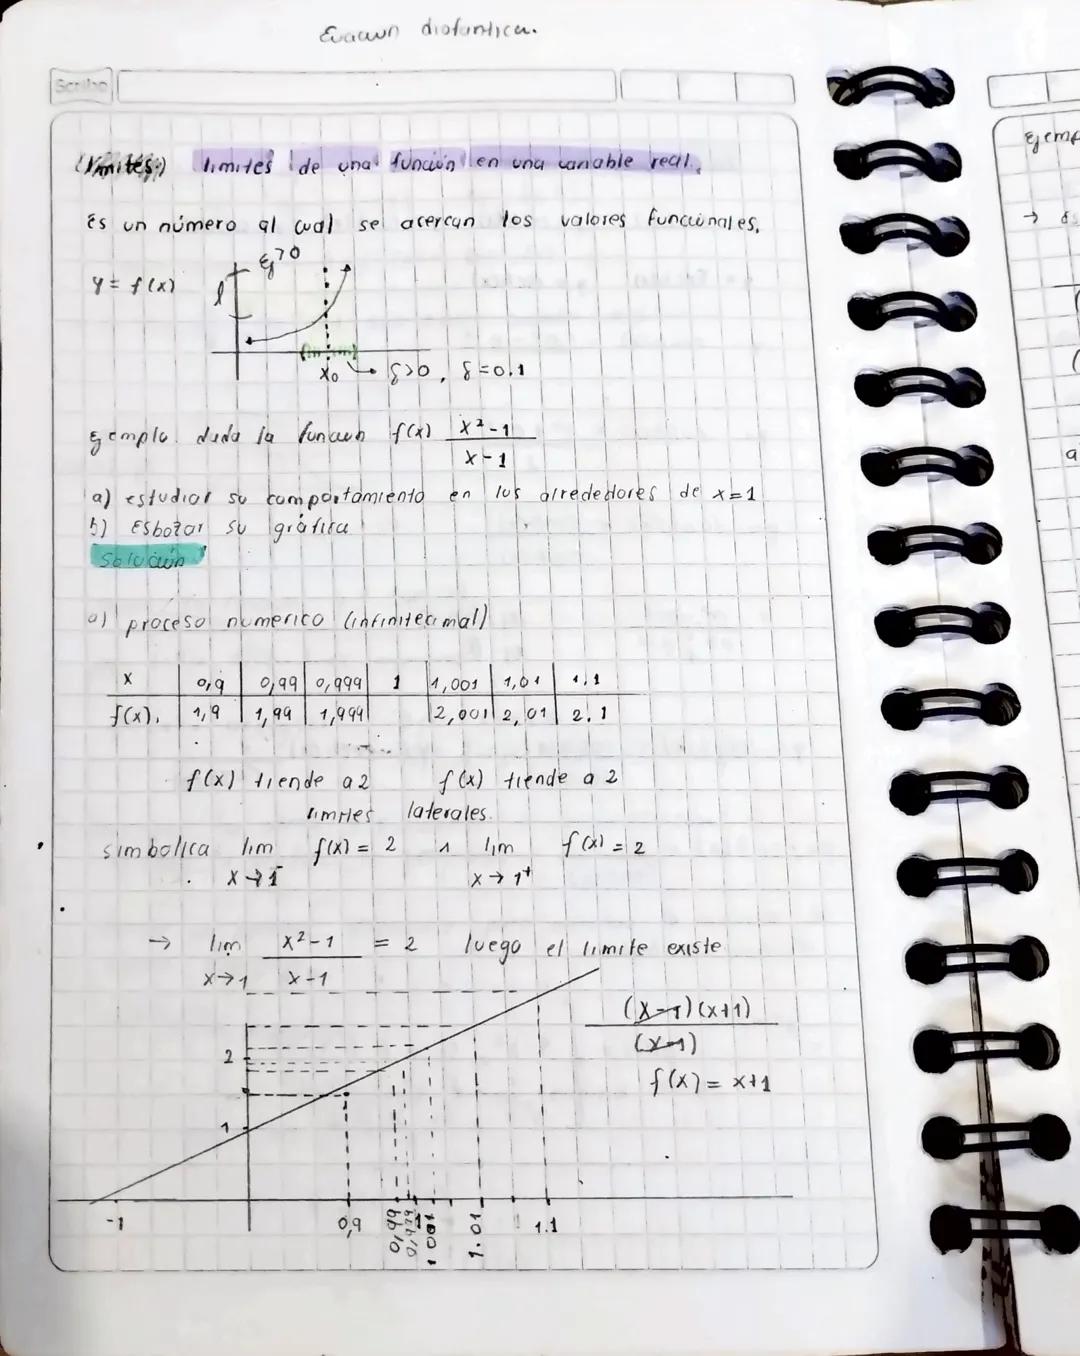 Ecuacion diofantica.
Scribe
limites:) limites de una función en una variable real.
Es un número al cual se acercan los valores funcionales.
ε>0
y = f(x)
l
x₀ → δ>0, δ=0.1
Ejemplo. dada la funcion f(x) x²-1
x-1
a) estudiar su comportamiento en los alrededores de x=1
b) Esbozar su gráfica
Solución
a) proceso numerico (infinitecimal)
x 0,9 0,99 0,999 1 1,001 1,01 1.1
f(x). 1,9 1,99 1,999 2,001 2,01 2.1
f(x) tiende a 2 f(x) tiende a 2
limites laterales.
simbolica lim f(x) = 2 ∧ lim f(x) = 2
x→1⁻ x→1⁺
→ lim x²-1 = 2 luego el limite existe
x→1 x-1
(x-1)(x+1)
(x-1)
f(x) = x+1
2
1
-1 0,9 0,99 0,999 1 1.001 1.01 1.1
Ejemp
→
a